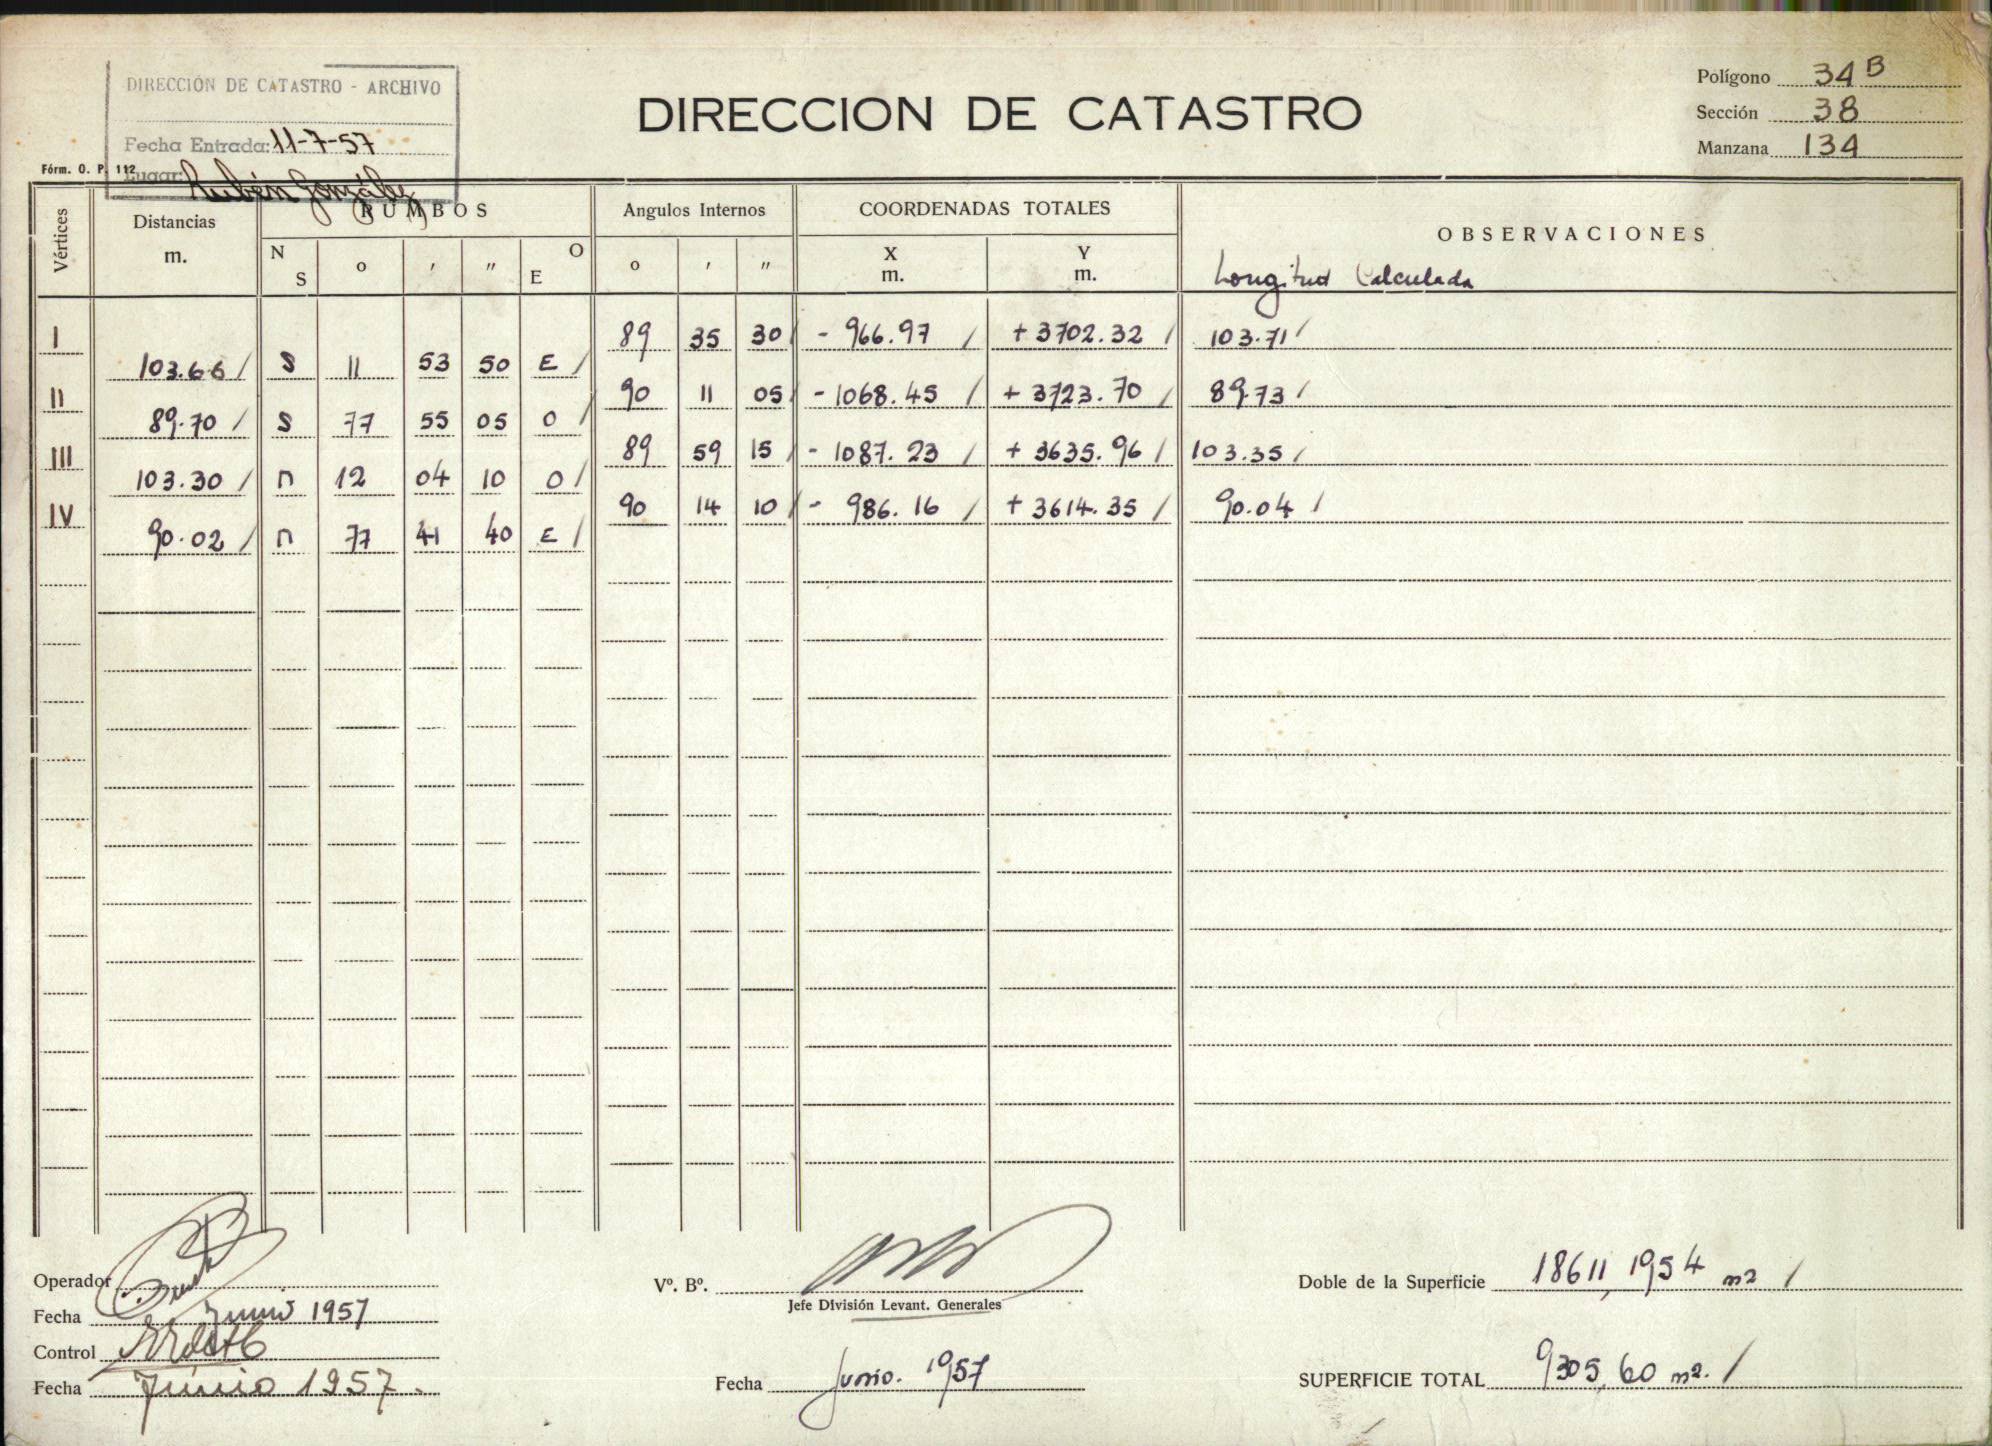 DIRECCIÓN DE CATASTRO - ARCHIVO
Fecha Entrada: 11-7-57
Lugar: Rubén González
Fórm. O. P. 112
DIRECCION DE CATASTRO
Polígono 34 B
Sección 38
Manzana 134
Vértices Distancias m. RUMBOS Angulos Internos COORDENADAS TOTALES OBSERVACIONES
N S o ′ ″ E O o ′ ″ X m. Y m. Longitud Calculada
I 89 35 30 / - 966.97 / + 3702.32 / 103.71 /
103.66 / S 11 53 50 E /
II 90 11 05 / - 1068.45 / + 3723.70 / 89.73 /
89.70 / S 77 55 05 O /
III 89 59 15 / - 1087.23 / + 3635.96 / 103.35 /
103.30 / N 12 04 10 O /
IV 90 14 10 / - 986.16 / + 3614.35 / 90.04 /
90.02 / N 77 41 40 E /
Operador
Fecha Junio 1957
Control
Fecha Junio 1957.
Vº. Bº.
Jefe División Levant. Generales
Fecha Junio. 1957
Doble de la Superficie 18611,1954 m2 /
SUPERFICIE TOTAL 9305,60 m2. /